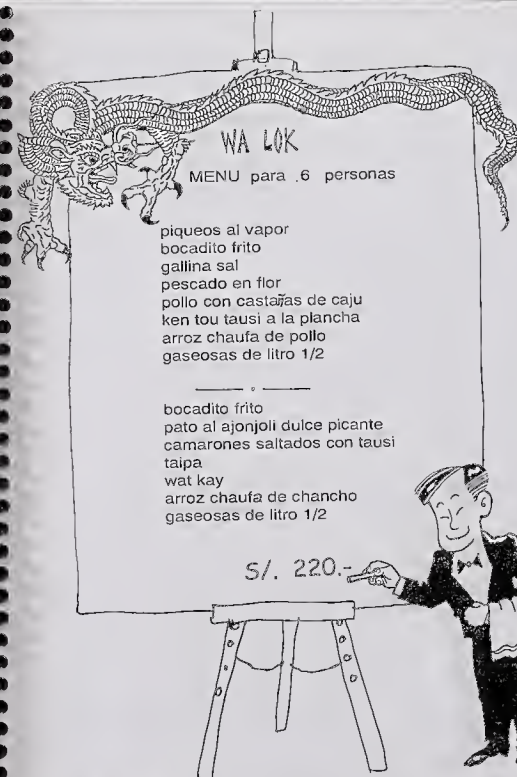 WA LOK
MENU para .6 personas
piqueos al vapor
bocadito frito
gallina sal
pescado en flor
pollo con castañas de caju
ken tou tausi a la plancha
arroz chaufa de pollo
gaseosas de litro 1/2
bocadito frito
pato al ajonjoli dulce picante
camarones saltados con tausi
taipa
wat kay
arroz chaufa de chancho
gaseosas de litro 1/2
S/. 220.-